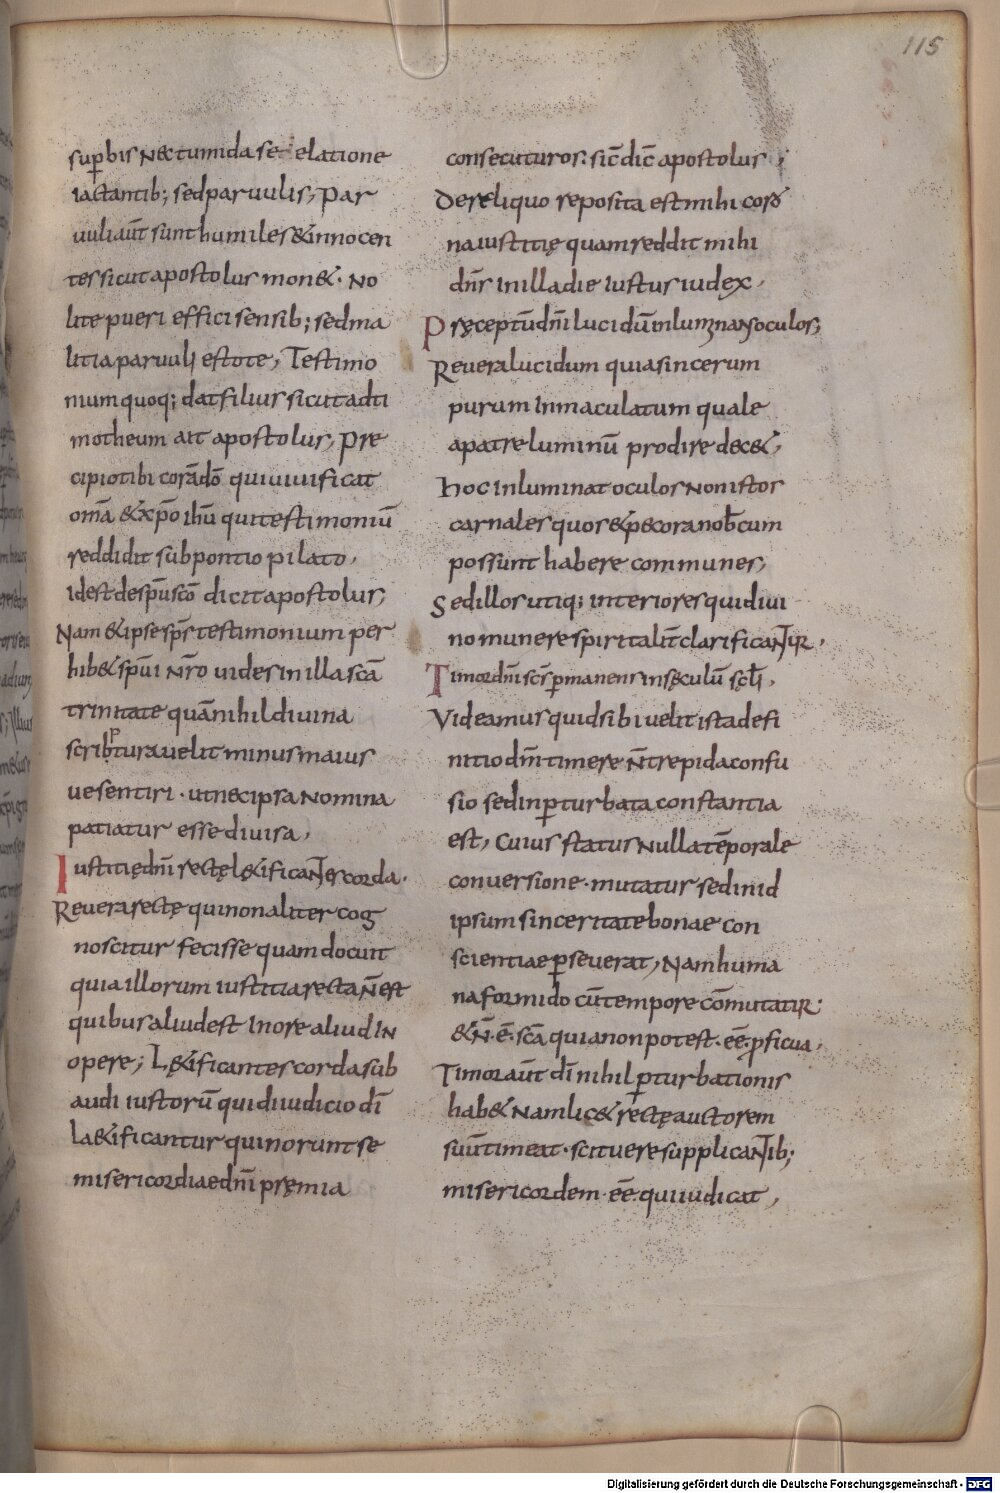 115
sup̱bis nec tumida se elatione
iactantib; sed paruulis, Par
uuli aūt sunt humiles & innocen
tes sicut apostolus mon&. No
lite pueri effici sensib; sed ma
litia paruuli estote, Testimo
nium quoq; dat filius sicut ad ti
motheum ait apostolus, Pre
cipio tibi corā dō qui uiuificat
omā & xp̄o ihū qui testimoniū
reddidit sub pontio pilato,
id est de sp̄u scō dicit apostolus,
Nam & ipse sp̄s testimonium per
hib& sp̄ui nr̄o uides in illa scā
trinitate quā nihil diuina
scribtura uelit minus maius
ue sentiri. ut nec ipsa nomina
patiatur esse diuisa,
Iustitię dn̄i rectę lę&ificantes corda.
Reuera rectę qui non aliter cog
noscitur fecisse quam docuit
quia illorum iustitia recta n̄ est
quibus aliud est in ore aliud in
opere; Lę&ificantes corda sub
audi iustorū qui di iudicio dī
la&ificantur qui norunt se
misericordiae dn̄i pręmia
consecuturos: sic̄ dic̄ apostolus,
De reliquo reposita est mihi coro
na iustitię quam reddit mihi
dn̄s in illa die iustus iudex,
Pręceptū dn̄i lucidū inluminans oculos;
Reuera lucidum quia sincerum
purum inmaculatum quale
a patre luminū prodire dec&,
Hoc inluminat oculos non istos
carnales quos & pecora nob̄cum
possunt habere communes,
Sed illos utiq; interiores qui diui
no munere spiritalit̄ clarificantur,
Timor dn̄i scs̄ p̱manens in sęculū sęcl̄i,
Videamus quid sibi uelit ista defi
nitio dn̄m timere n̄ trepida confu
sio sed inp̱turbata constantia
est, Cuius status nulla tēporale
conuersione. mutatur sed in id
ipsum sinceritate bonae con
scientiae p̱seuerat, Nam huma
na formido cū tempore cōmutatur:
& n̄. ē. scā quia non potest. eē. p̱ficua,
Timor aūt dī nihil p̱turbationis
hab& Nam lic& rectę auctorem
suū timeat. scit uere supplicantib;
misericordem. eē. qui iudicat,
Digitalisierung gefördert durch die Deutsche Forschungsgemeinschaft - DFG